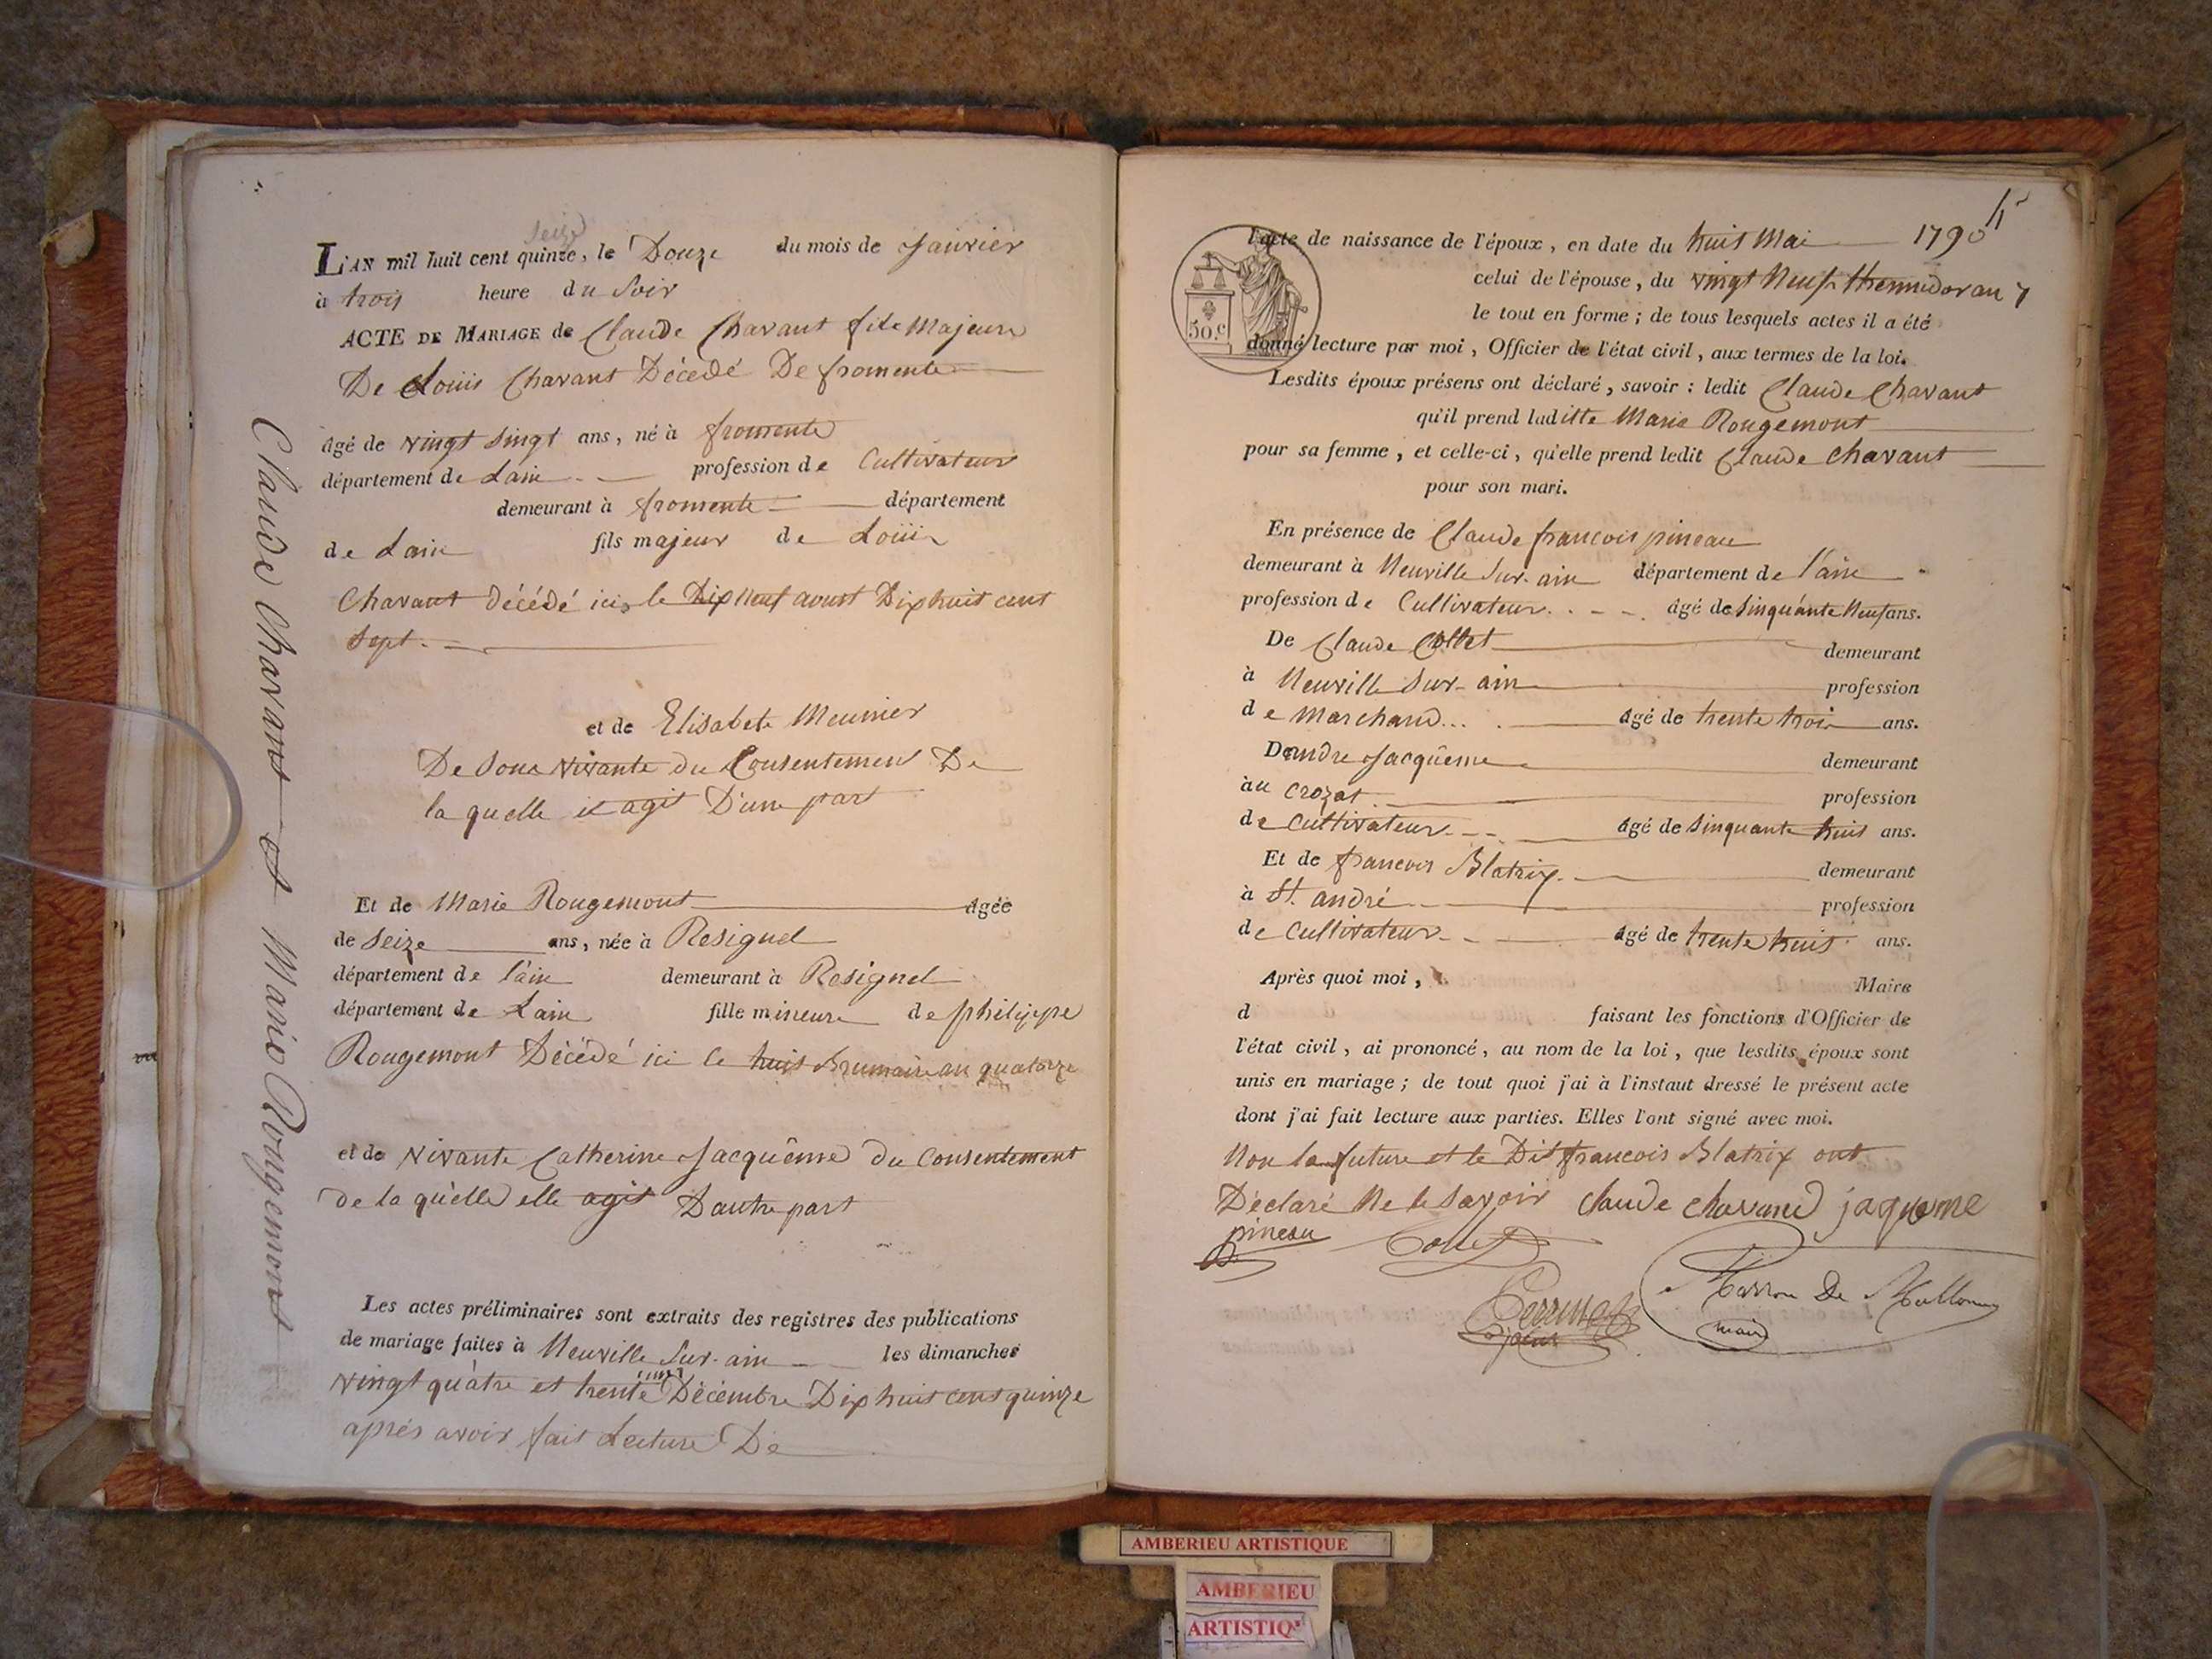 Claude Chavant et Marie Rougemont
seize
L'AN mil huit cent quinze, le Douze du mois de Janvier
à trois heure du Soir
ACTE DE MARIAGE de Claude Chavant fils Majeur
De Louis Chavant Décédé De fromente
âgé de vingt singt ans, né à fromente
département de Lain profession de Cultivateur
demeurant à fromente département
de Lain fils majeur de Louis
Chavant décédé ici le Dix neuf aoust Dix huit cent
Sept.
et de Elisabete Meunier
De Sone vivante du Consentement De
la quelle il agit D'une part
Et de Marie Rougemont âgée
de Seize ans, née à Resignel
département de l'ain demeurant à Resignel
département de Lain fille mineure de philippe
Rougemont Décédé ici le huit Brumaire an quatorze
et de vivante Catherine Jacquême du Consentement
de la quelle elle agit Dautre part
Les actes préliminaires sont extraits des registres des publications
de mariage faites à Neuville Sur-ain les dimanches
vingt quatre et trente un Décembre Dix huit cent quinze
après avoir fait Lecture De
l'acte de naissance de l'époux, en date du huit Mai 1790
celui de l'épouse, du vingt Neuf thermidor an 7
le tout en forme; de tous lesquels actes il a été
50.c
donné lecture par moi, Officier de l'état civil, aux termes de la loi.
Lesdits époux présens ont déclaré, savoir: ledit Claude Chavant
qu'il prend laditte Marie Rougemont
pour sa femme, et celle-ci, qu'elle prend ledit Claude Chavant
pour son mari.
En présence de Claude francois pineau
demeurant à Neuville Sur-ain département de l'ain
profession de Cultivateur âgé de Sinquante Neuf ans.
De Claude Collet demeurant
à Neuville Sur-ain profession
de Marchand âgé de trente trois ans.
De andre Jacquême demeurant
àu Crozat profession
de Cultivateur âgé de Sinquante huit ans.
Et de francois Blatrix demeurant
à St. andré profession
de Cultivateur âgé de trente huit ans.
Après quoi moi, Maire
d faisant les fonctions d'Officier de
l'état civil, ai prononcé, au nom de la loi, que lesdits époux sont
unis en mariage; de tout quoi j'ai à l'instaut dressé le présent acte
dont j'ai fait lecture aux parties. Elles l'ont signé avec moi.
Non la future et le Dit francois Blatrix ont
Déclaré Ne le Savoir Claude Chavand jaqueme
pineau Collet
Maire
AMBERIEU ARTISTIQUE
AMBERIEU
ARTISTIQU